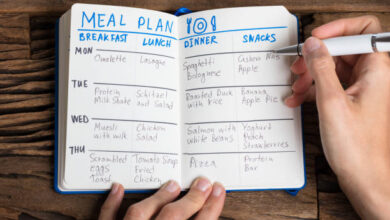 MEAL PLAN
BREAKFAST LUNCH DINNER SNACKS
MON
Omelette Lasagne Spaghetti Bolognese Cashew Nuts Apple
TUE
Protein Milk Shake Schitzel and Salad Roasted Duck with Rice Banana Apple
WED
Muesli with milk Chicken Salad Salmon with white Beans Yoghurt Peach Strawberries
THU
Scrambled eggs Toast Tomato Soup Fried Chicken Pizza Protein Bar